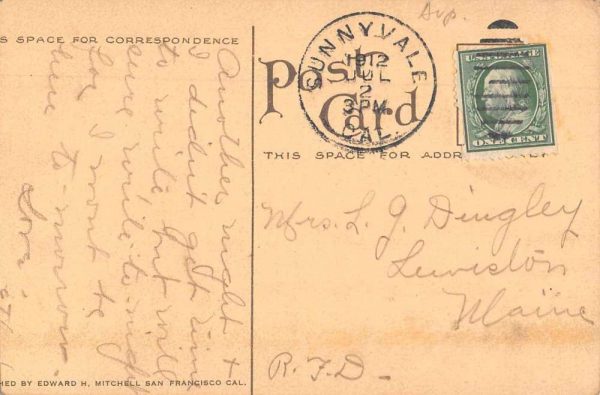 S SPACE FOR CORRESPONDENCE
Another night &
I didn't get time
to write but will
sure write to-night
for I wont be
here to-morrow.
Love
HED BY EDWARD H. MITCHELL SAN FRANCISCO CAL.
Post Card
SUNNYVALE
1912
JUL
2
3 PM
CAL.
U.S. POSTAGE
ONE CENT
THIS SPACE FOR ADDR
Mrs. L. J. Dingley
Lewiston
Maine
R.F.D.